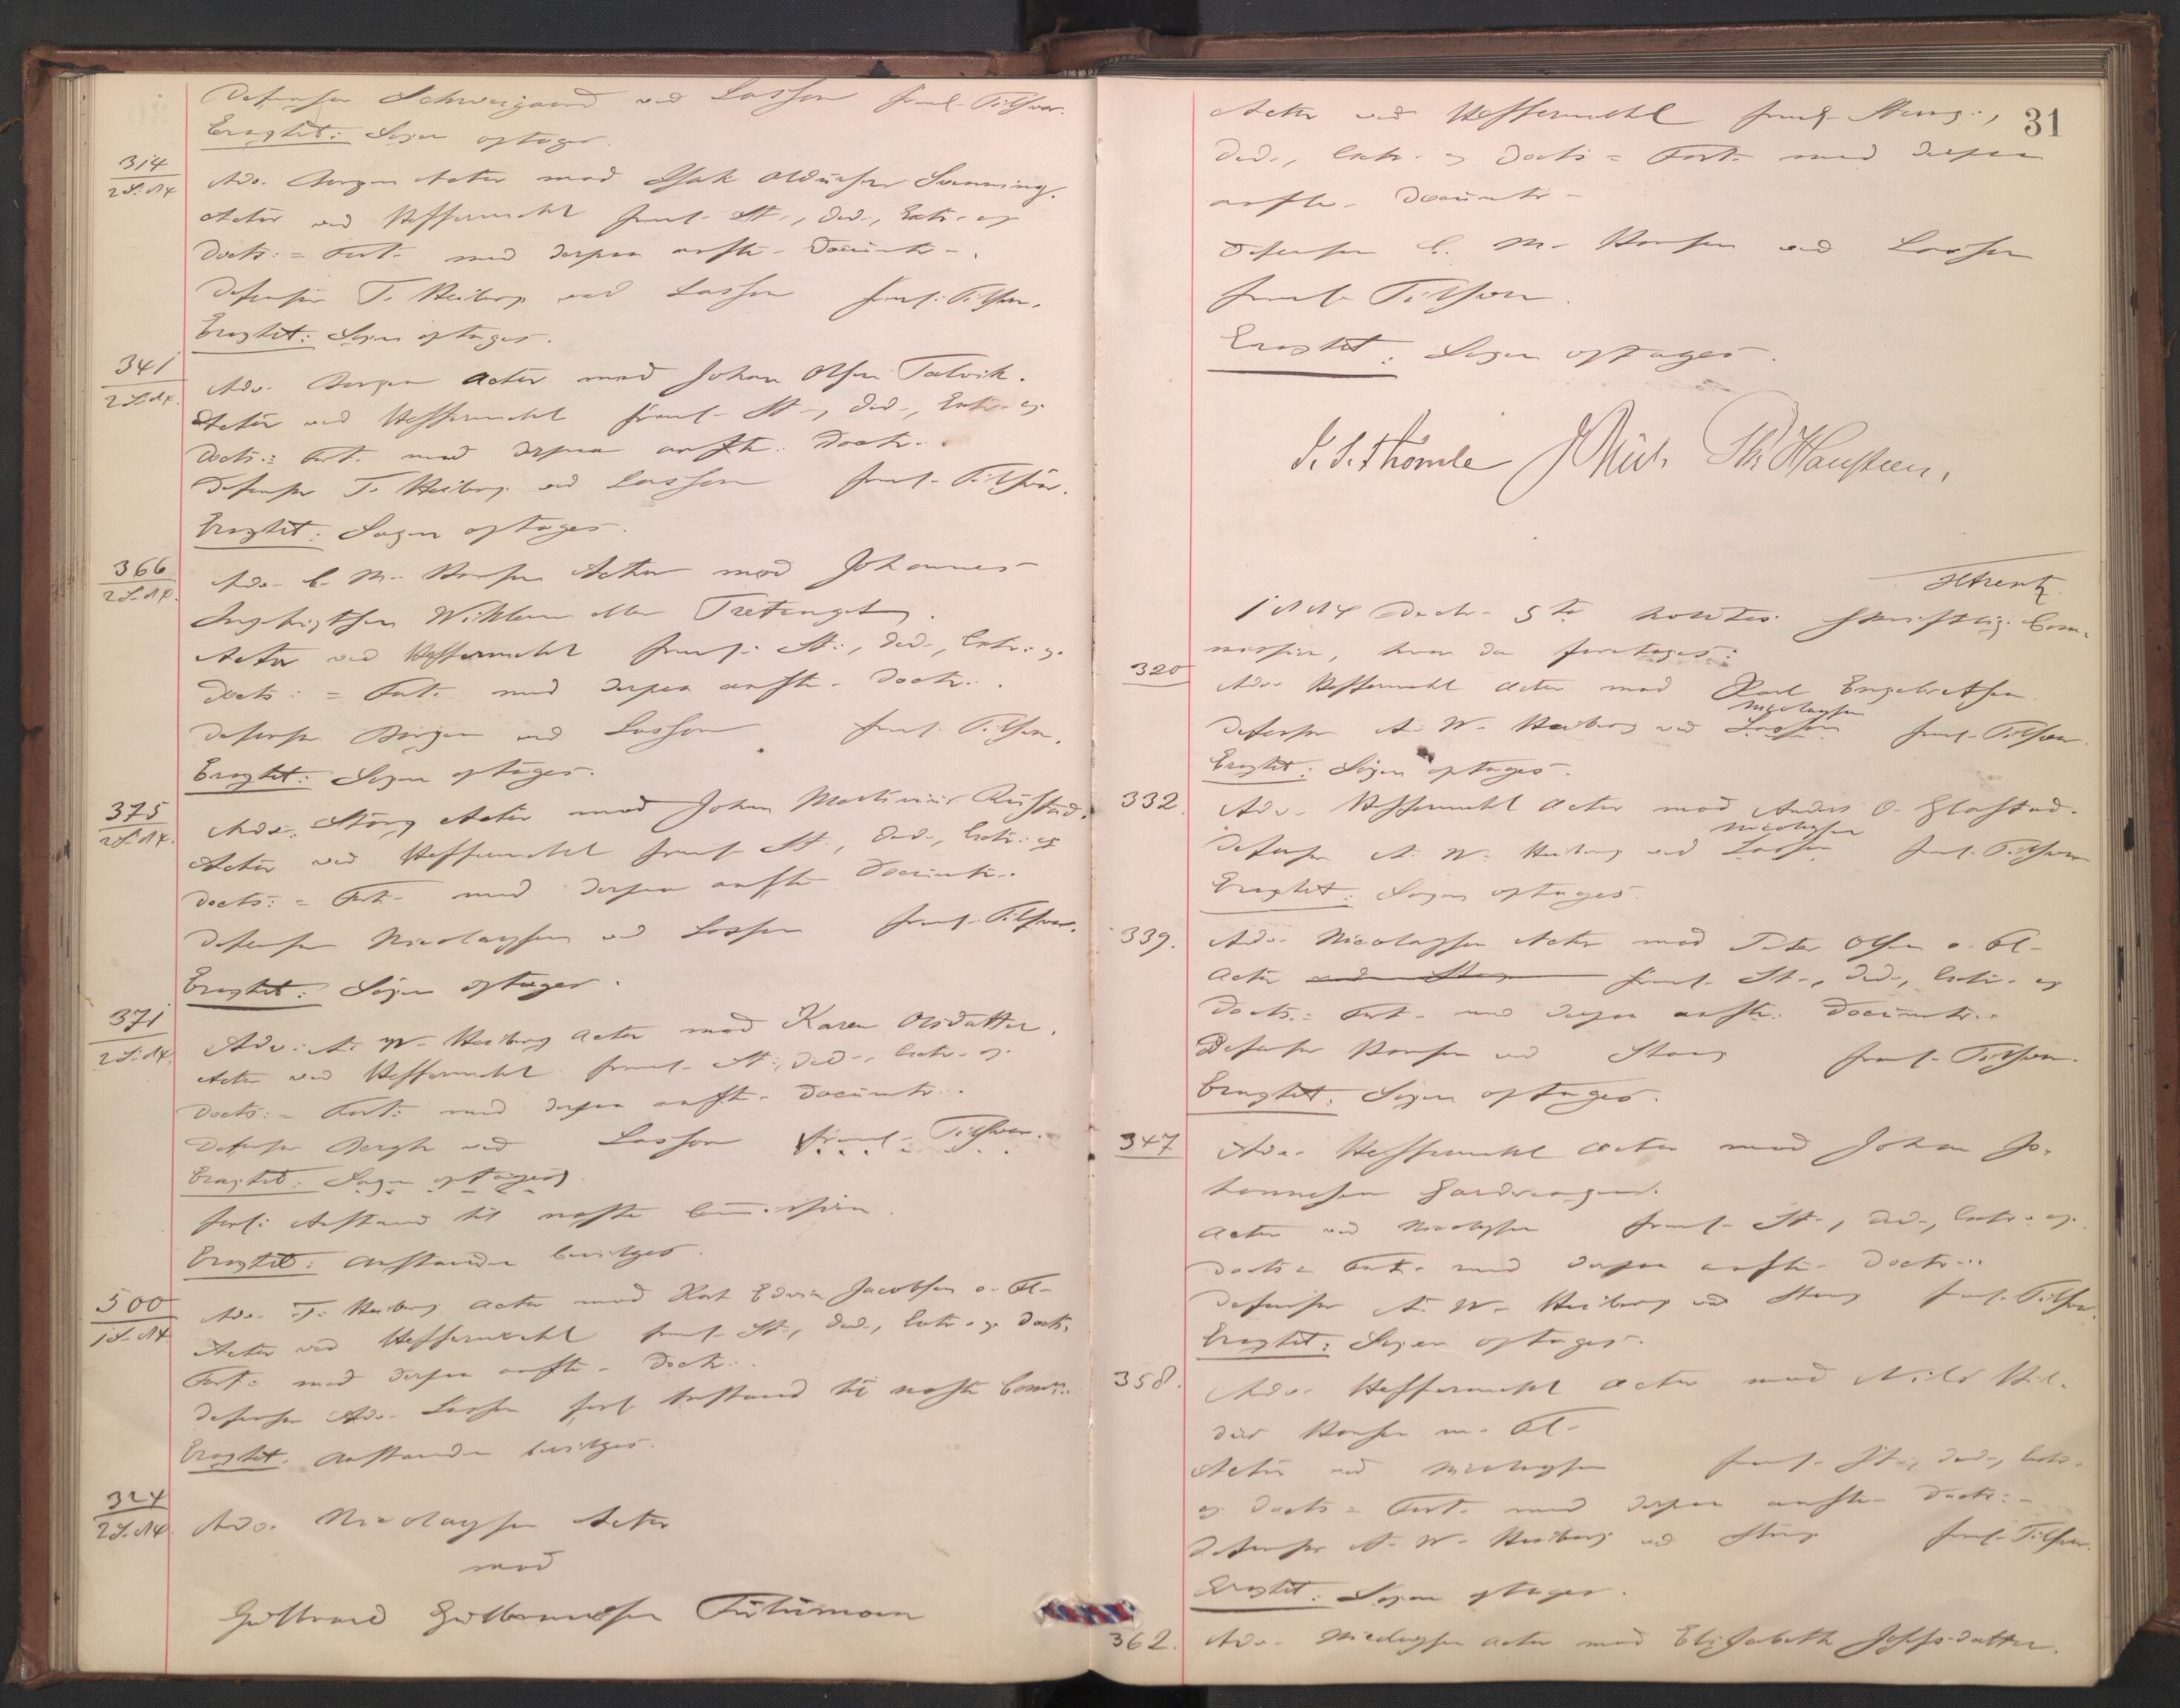 Defensor Schweigaard ved Lasson freml. Tilsvar.
Eragtet: Sagen optages.
314
2 S. 84
Adv. Bergen Actor mod Isak Oldusen Svenning.
Actor ved Heffermehl freml. St., Ded., Extr. og
Docts: = Fort. med derpaa anfte. Documtr.
Defensor T. Heiberg ved Lasson freml. Tilsvar.
Eragtet: Sagen optages.
341
2 S. 84.
Adv. Bergen Actor mod Johan Olsen Talvik.
Actor ved Heffermehl freml. St., Ded., Extr. og
Docts: = Fort. med derpaa anfte. Doctr.
Defensor T. Heiberg ved Lasson freml. Tilsvar.
Eragtet: Sagen optages.
366
2 S. 84.
Adv. C. M. Hansen Actor mod Johannes
Ingebrigtsen eller Tretenget
Actor ved Heffermehl freml. St., Ded., Extr. og
Docts: = Fort. med derpaa anfte. Doctr.
Defensor Bergen ved Lasson freml. Tilsvar.
Eragtet: Sagen optages.
375
2 S. 84.
Adv. Stang Actor mod Johan Martinius Rustad.
Actor ved Heffermehl freml. St., Ded., Extr. og
Docts: = Fort. med derpaa anfte. Documtr.
Defensor Nicolaysen ved Lasson freml. Tilsvar.
Eragtet: Sagen optages.
371
2 S. 84.
Adv. A. W. Heiberg Actor mod Karen Olsdatter.
Actor ved Heffermehl freml. St., Ded., Extr. og
Docts: = Fort. med derpaa anfte. Documtr.
Defensor Bergh ved Lasson freml. Tilsvar.
Eragtet: Sagen optages
forl. Anstand til næste Commission.
Eragtet: Anstanden bevilges.
500
1 S. 84
Adv. T. Heiberg Actor mod Karl Edvin Jacobsen o. Fl.
Actor ved Heffermehl freml. St., Ded., Extr. og Docts,
Fort. med derpaa anfte. Doctr.
Defensor Adv. Lasson forl. Anstand til næste Comm.
Eragtet: Anstanden bevilges.
324
2 S. 84.
Adv. Nicolaysen Actor
mod
Gulbrand Gulbrandsen Tutumoen
31
Actor ved Heffermehl freml. Stævng.,
Ded., Extr. og Docts = Fort. med derpaa
anfte. Documtr.
Defensor C. M. Hansen ved Lasson
freml. Tilsvar.
Eragtet: Sagen optages.
S. S. Thomle Th. Hansteen.
1884 Decbr. 5te holdtes skriftlig Com-
mission, hvor da foretoges:
320
Adv. Heffermehl Actor mod Karl Engebretsen.
Nicolaysen
Defensor A. W. Heiberg ved Lasson freml. Tilsvar.
Eragtet: Sagen optages.
332.
Adv. Heffermehl Actor mod Anders O. Glastad.
Nicolaysen
Defensor A. W. Heiberg ved Lasson freml. Tilsvar
Eragtet: Sagen optages.
339.
Adv. Nicolaysen Actor mod Peter Olsen o. Fl.
Actor ved Stang freml. St., Ded., Extr. og
Docts: = Fort. med derpaa anfte. Documtr.
Defensor Hansen ved Stang freml. Tilsvar.
Eragtet: Sagen optages.
347
Adv. Heffermehl Actor mod Johan Jo-
hannesen
Actor ved Nicolaysen freml. St., Ded., Extr. og
Docts = Fort. med derpaa anfte. Doctr.
Defensor A. W. Heiberg ved Stang freml. Tilsvar.
Eragtet: Sagen optages.
358.
Adv. Heffermehl Actor mod Nils Hil-
dus Hansen m. Fl.
Actor ved Nicolaysen freml. St., Ded., Extr.
og Docts = Fort. med derpaa anfte. Doctr.
Defensor A. W. Heiberg ved Stang freml. Tilsvar.
Eragtet: Sagen optages.
362.
Adv. Nicolaysen Actor mod Elisabeth Jepsdatter.